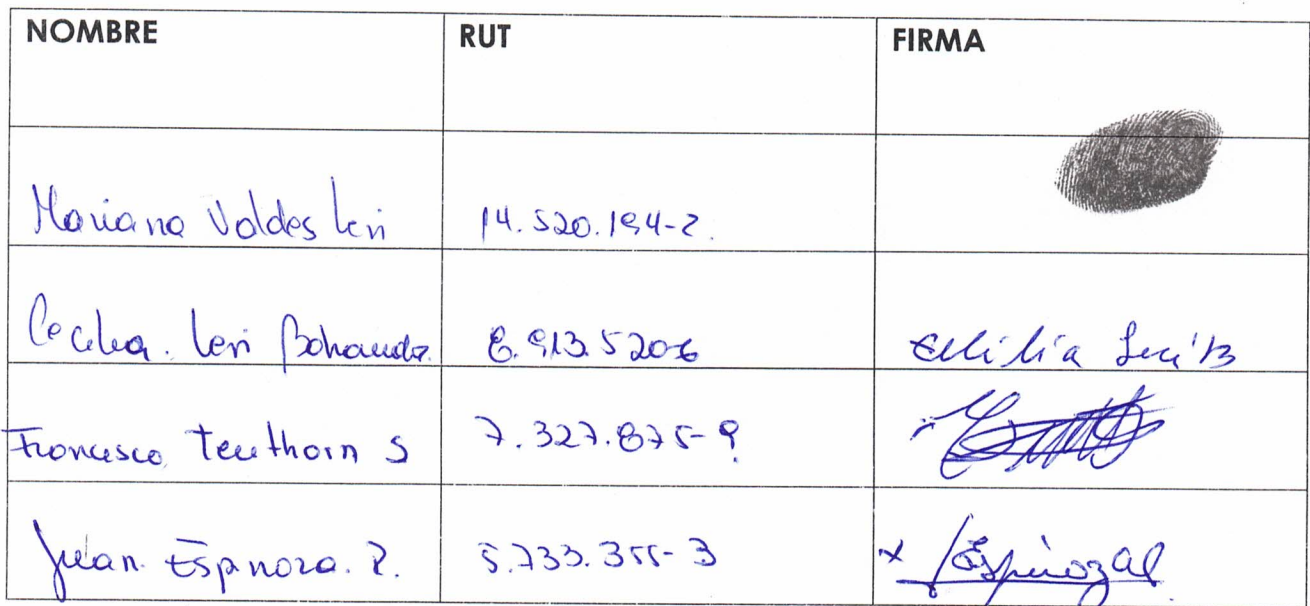 NOMBRE RUT FIRMA
Mariana Valdes Leri 14.520.194-2.
Cecilia. Leri 8.913.520-6 Cecilia
Francisco Teuthorn S 7.327.875-9
Juan Espinoza. P. 5.733.355-3 x Espinoza